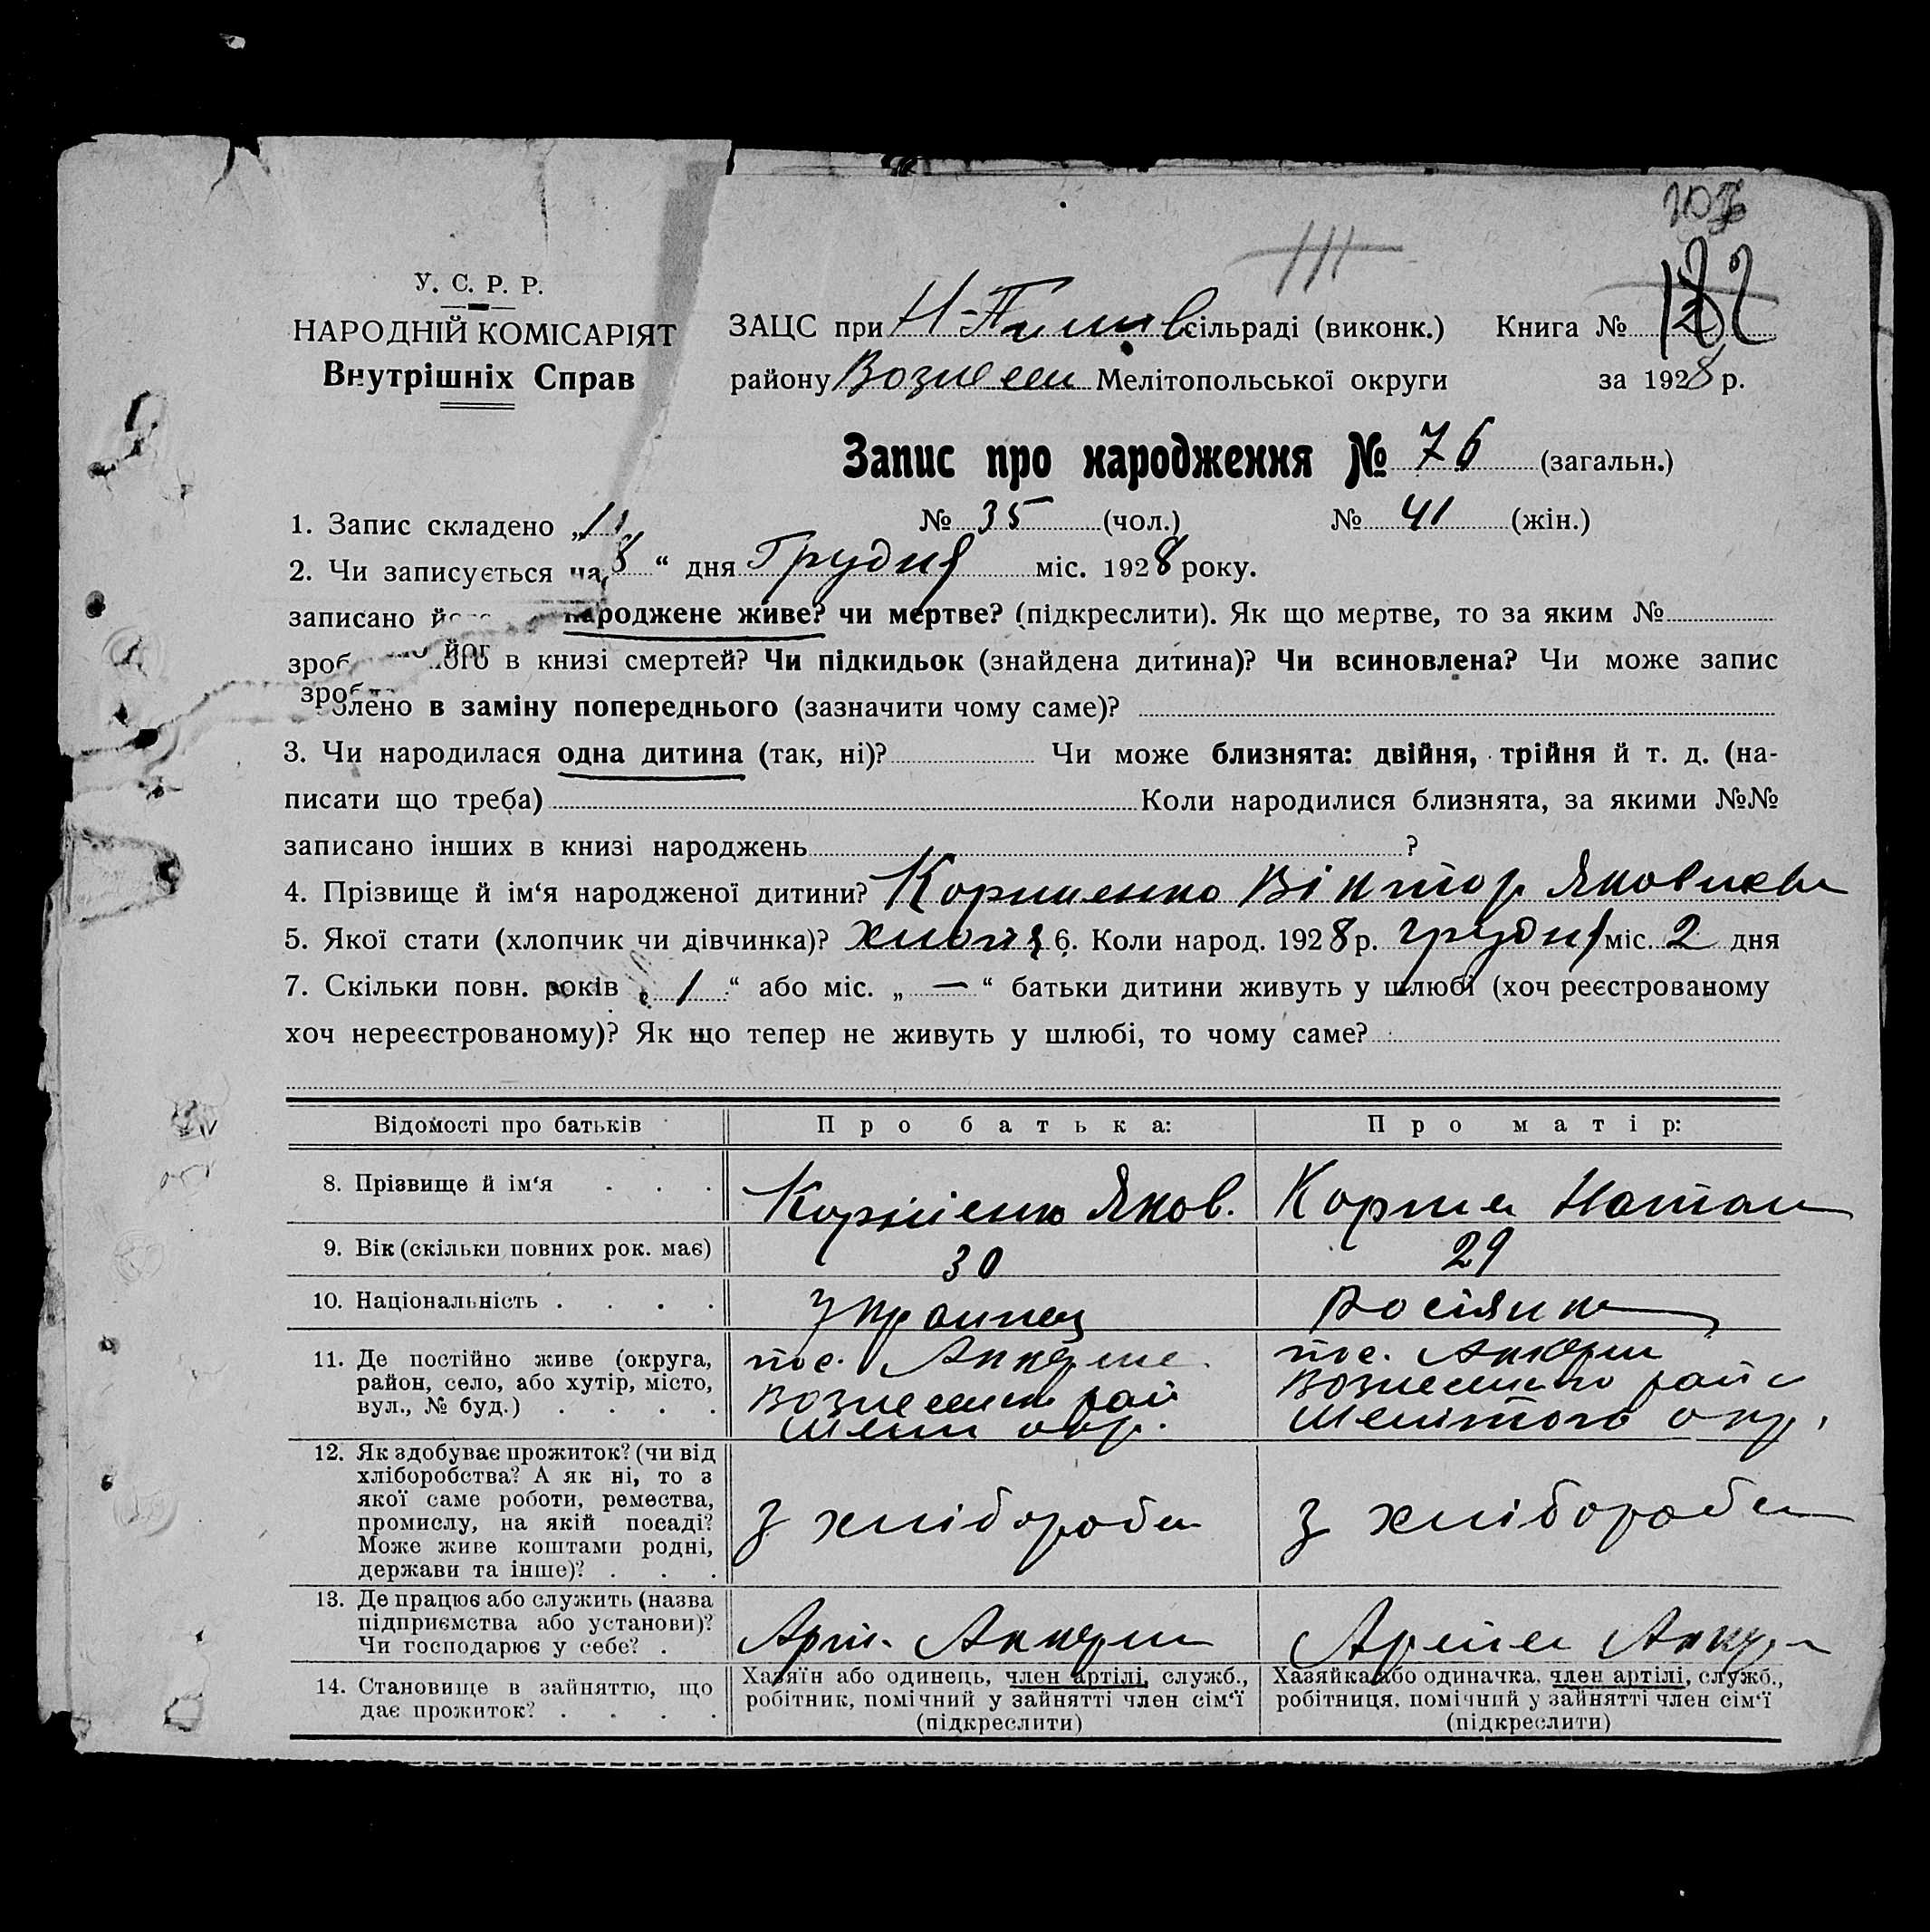 У. С. Р. Р.
НАРОДНІЙ КОМІСАРІЯТ
Внутрішніх Справ
ЗАЦС при сільраді (виконк.) Книга №
району Вознесен Мелітопольської округи за 1928 р.
Запис про народження № 76 (загальн.)
№ 35 (чол.) № 41 (жін.)
1. Запис складено „
8 “ дня Грудня міс. 1928 року.
2. Чи записується на
народжене живе? чи мертве? (підкреслити). Як що мертве, то за яким №
записано його в книзі смертей? Чи підкидьок (знайдена дитина)? Чи всиновлена? Чи може запис
зроблено в заміну попереднього (зазначити чому саме)?
3. Чи народилася одна дитина (так, ні)? Чи може близнята: двійня, трійня й т. д. (на-
писати що треба) Коли народилися близнята, за якими №№
записано інших в книзі народжень ?
4. Прізвище й ім‘я народженої дитини? Корниенко Віктор Яковлеви
5. Якої стати (хлопчик чи дівчинка)? хлопця 6. Коли народ. 1928 р. грудня міс. 2 дня
7. Скільки повн. років „ 1 “ або міс. „ — “ батьки дитини живуть у шлюбі (хоч реєстрованому
хоч нереєстрованому)? Як що тепер не живуть у шлюбі, то чому саме?
Відомості про батьків Про батька: Про матір:
8. Прізвище й ім‘я . . . Корнієнко Яков. Корние Натал
9. Вік (скільки повних рок. має) 30 29
10. Національність . . . . Украинец Росіянка
11. Де постійно живе (округа, район, село, або хутір, місто, вул., № буд.) . . . .
пос. Анкерше
Вознесенск рай
Меліт окр.
пос. Анкерш
Вознесенско райо
Мелітопо окр.
12. Як здобуває прожиток? (чи від хліборобства? А як ні, то з якої саме роботи, ремества, промислу, на якій посаді? Може живе коштами родні, держави та інше)? . . .
З хлібороба З хлібороба
13. Де працює або служить (назва підприємства або установи)? Чи господарює у себе? .
14. Становище в зайняттю, що дає прожиток? . . . .
Хазяїн або одинець, член артілі, служб., робітник, помічний у зайнятті член сім‘ї (підкреслити)
Хазяйка або одиначка, член артілі, служб., робітниця, помічний у зайнятті член сім‘ї (підкреслити)